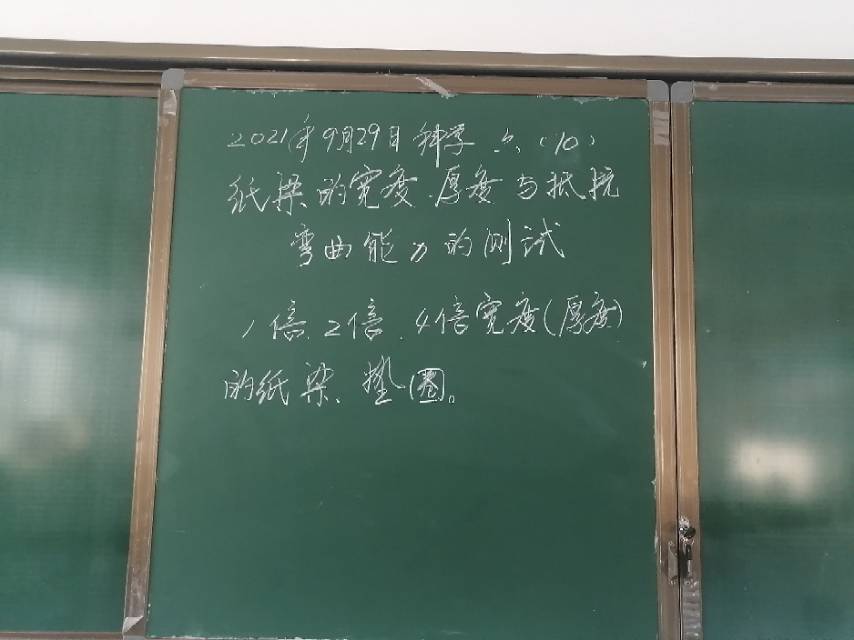 2021年9月29日科学 六、(10)
纸梁的宽度、厚度与抵抗
弯曲能力的测试
1倍、2倍、4倍宽度(厚度)
的纸梁、垫圈。